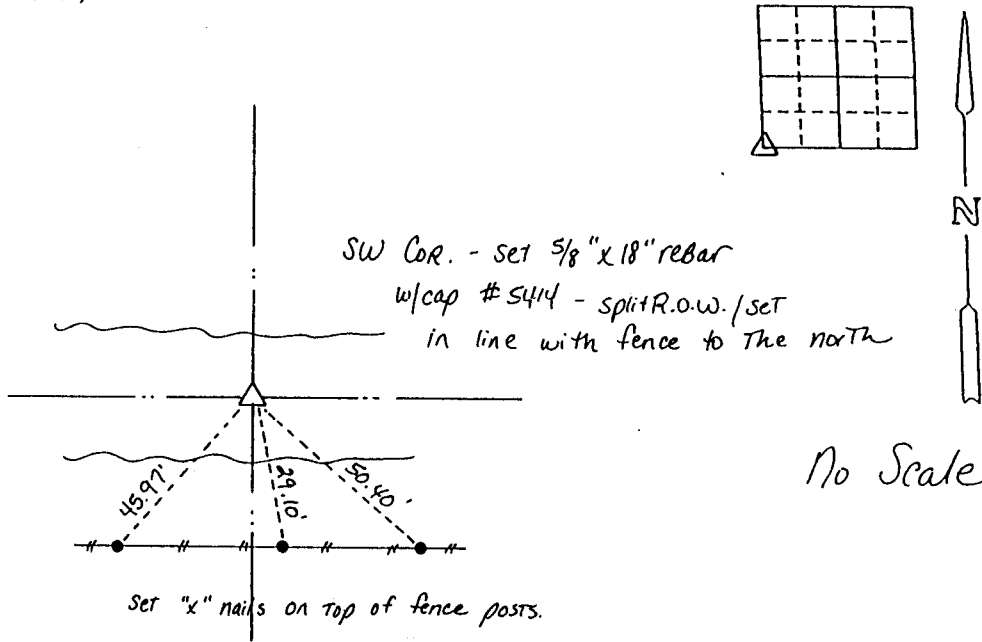 SW COR. - SET 5/8" x 18" reBar
w/cap #5414 - split R.O.W./SET
in line with fence to The norTh
N
No Scale
45.97'
29.10'
50.40'
SeT "x" nails on Top of fence posTs.